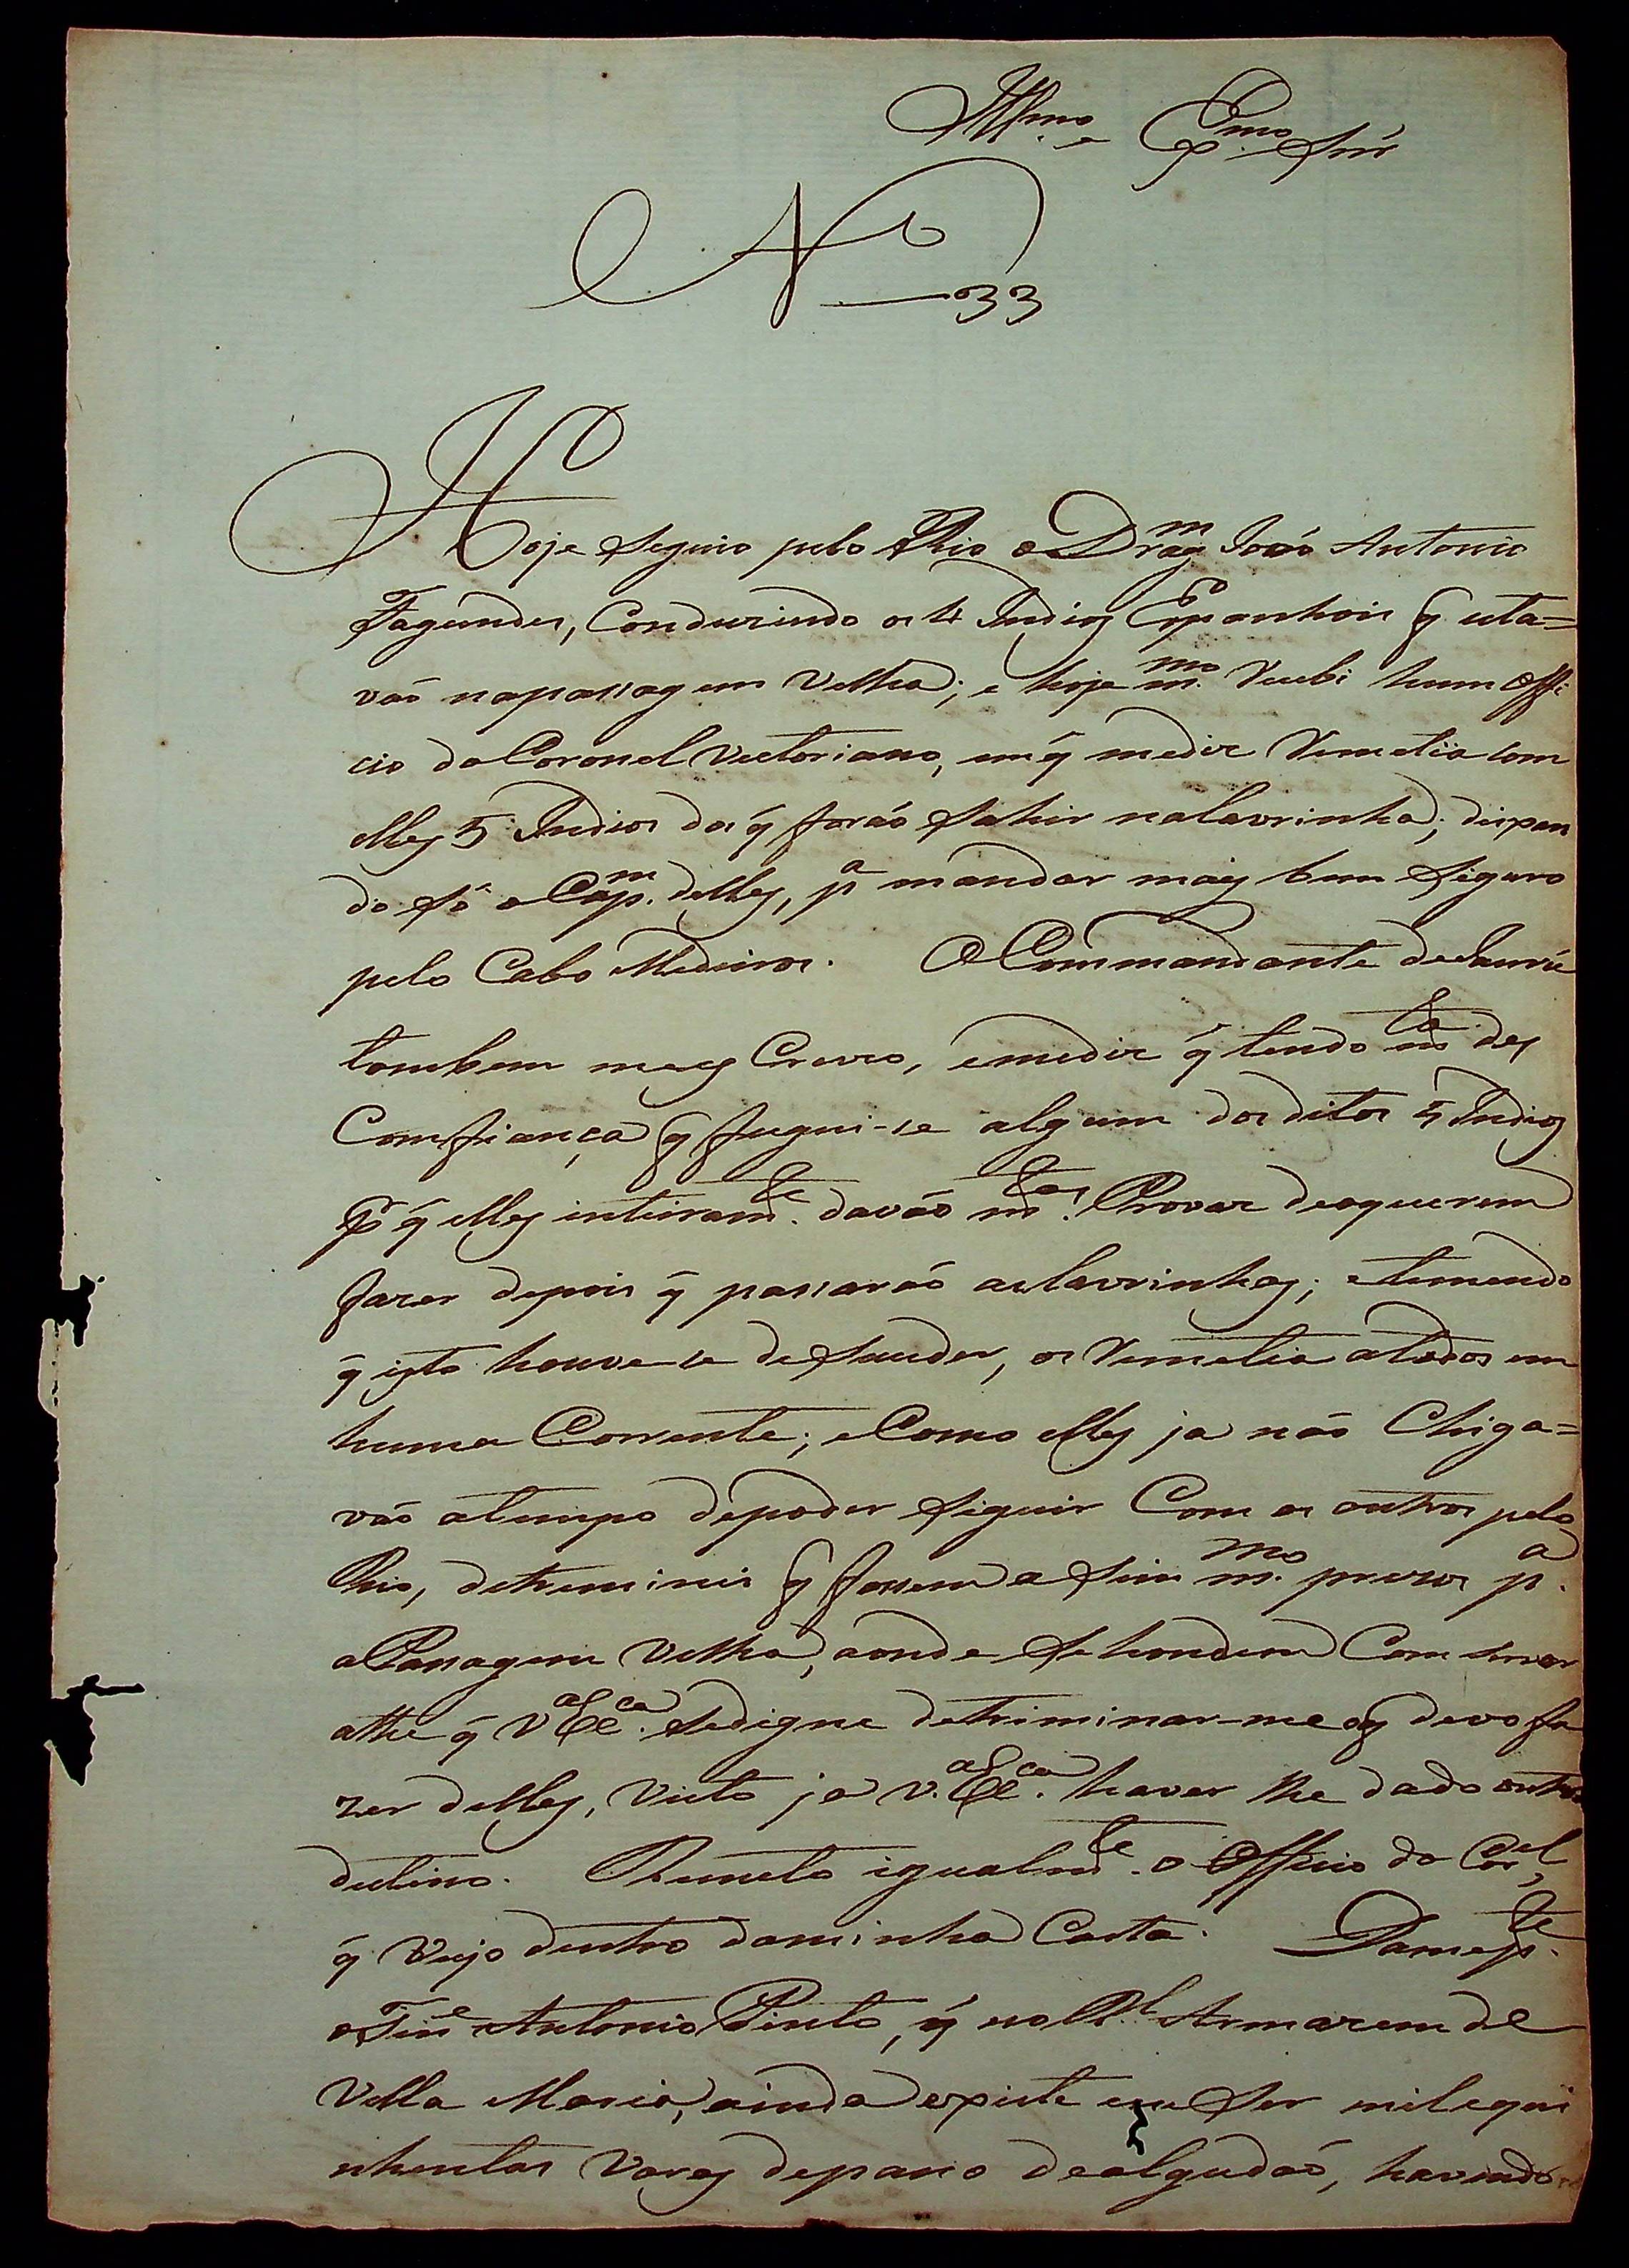 Illmo. e Exmo. Snr
No 33
Hoje Seguio pelo Rio o Dragm João Antonio
Fagundes, Conduzindo os 4 Indios Espanhois q esta=
vaõ napassagem Velha; e hoje mmo. Recebi hum Offi
cio do Coronel Victoriano, em q medis Remetia com
elles 5 Indios dos q foraõ Sahir nalavrinha;
do só o Capm. delles, pa mandar mais bem Siguro
pelo Cabo Medeiros. O Commandante de Jaurú
tambem mes Creveo, emediz q tendo mta. des
Comfiança q fugui-se algum dos ditos 5 Indios
Po q elles inteiramte. davaõ mtas. Provas deoquerem
fazer depois q passaraõ aslavrinhas; etemendo
q isto houve-se desuceder, os Remetia atados em
huma Corrente; eComo elles ja não Chiga=
vaõ atempo depoder Siguir Com os outros pelo
Rio, detreminei q fossem asim mmo. prezos pa.
aPassagem Velha, aonde Sehondem Comservar
athe q V Exca. Sedigne detriminar-me oq devo fa
zer delles, Visto ja V. Exca. haver lhe dado outro
destino. Remeto igualmte. o Officio do Corel,
q Veyo dentro daminha Carta. Dameпte.
oTene Antonio Pinto, q noRl. Armazem de
Villa Maria, ainda existe em Ser milequi
nhentas Varas depano dealgudaõ, havendo